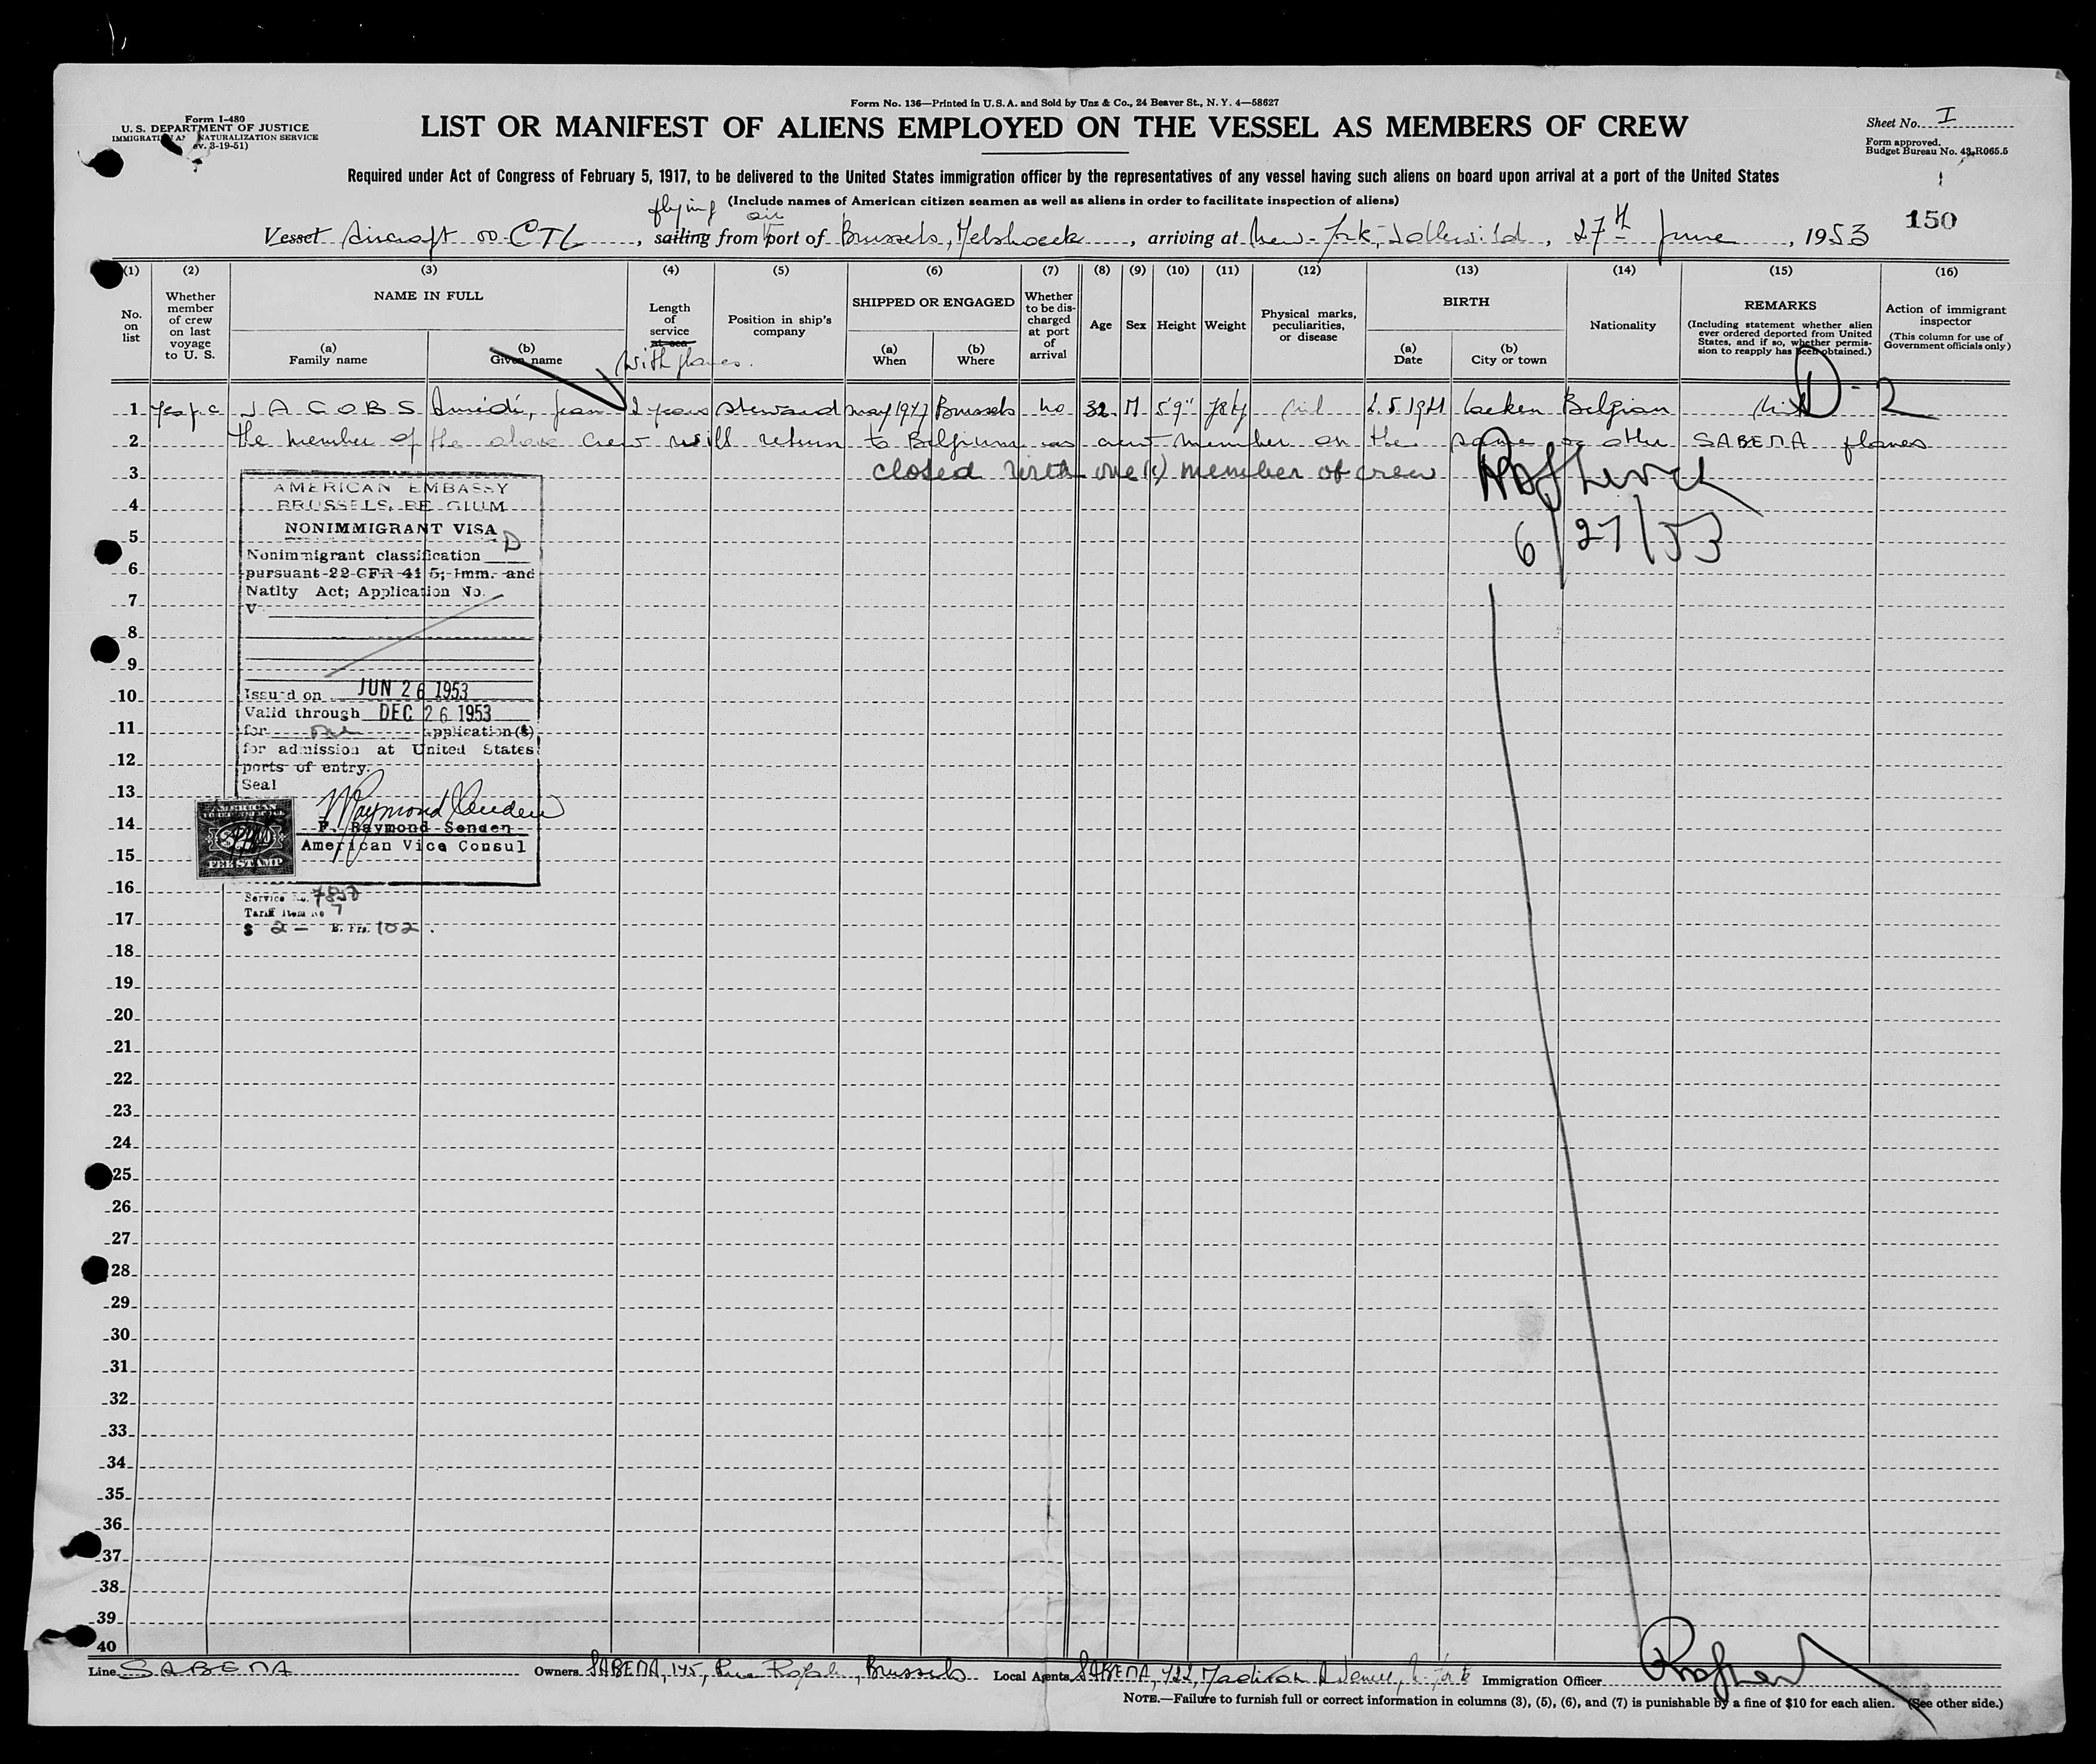 Form No. 136—Printed in U.S.A. and Sold by Unz & Co., 24 Beaver St., N. Y. 4—58627
Form I-480
U. S. DEPARTMENT OF JUSTICE
IMMIGRATION AND NATURALIZATION SERVICE
ev. 3-19-51)
LIST OR MANIFEST OF ALIENS EMPLOYED ON THE VESSEL AS MEMBERS OF CREW
Sheet No. I
Form approved.
Budget Bureau No. 43-R065.5
Required under Act of Congress of February 5, 1917, to be delivered to the United States immigration officer by the representatives of any vessel having such aliens on board upon arrival at a port of the United States
(Include names of American citizen seamen as well as aliens in order to facilitate inspection of aliens)
150
flying air
Vessel Aircraft OO CTL, sailing from port of Brussels, Melsbroeck, arriving at New-York, Idlewild, 27th June, 1953
(1) (2) (3) (4) (5) (6) (7) (8) (9) (10) (11) (12) (13) (14) (15) (16)
No. on list
Whether member of crew on last voyage to U. S.
NAME IN FULL
(a) Family name
(b) Given name
Length of service at sea
with planes.
Position in ship's company
SHIPPED OR ENGAGED
(a) When
(b) Where
Whether to be discharged at port of arrival
Age
Sex
Height
Weight
Physical marks, peculiarities, or disease
BIRTH
(a) Date
(b) City or town
Nationality
REMARKS
(Including statement whether alien ever ordered deported from United States, and if so, whether permission to reapply has been obtained.)
Action of immigrant inspector
(This column for use of Government officials only)
1 JACOBS Amédé, Jean 2 years steward may 1947 Brussels no 32 M 5'9" nil 2.5.1921 Laeken Belgian nil D-2
2 the member of the above crew will return to Belgium as crew member on the same or other SABENA planes
3 closed with one (1) member of crew
4
5
6
7
8
9
10
11
12
13
14
15
16
17
18
19
20
21
22
23
24
25
26
27
28
29
30
31
32
33
34
35
36
37
38
39
40
6/27/53
AMERICAN EMBASSY
BRUSSELS, BELGIUM
NONIMMIGRANT VISA
Nonimmigrant classification D
pursuant 22 CFR 41 5; Imm. and
Natlty Act; Application No.
V
Issued on JUN 26 1953
Valid through DEC 26 1953
for one application(s)
for admission at United States
ports of entry.
Seal
F. Raymond Senden
American Vice Consul
AMERICAN
FEE STAMP
Service No.
Tariff Item No 7
$ 2 — B. Frs. 102.
Line SABENA
Owners SABENA, 145, Rue Royale, Brussels
Local Agents SABENA, 422, Madison Avenue, N. York
Immigration Officer
NOTE.—Failure to furnish full or correct information in columns (3), (5), (6), and (7) is punishable by a fine of $10 for each alien. (See other side.)